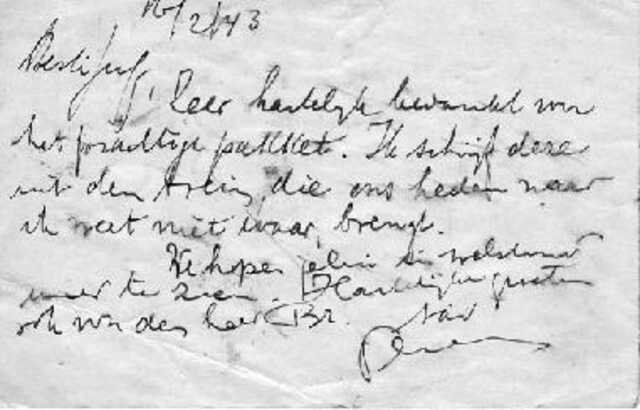 16/2/43
Beste Juff,
Zeer hartelijk bedankt voor
het prachtige pakket. Ik schrijf deze
uit den trein, die ons heden naar
ik weet niet waar, brengt.
We hopen in welstand
weer te zien. Hartelijke groeten
ook van den heer Br.